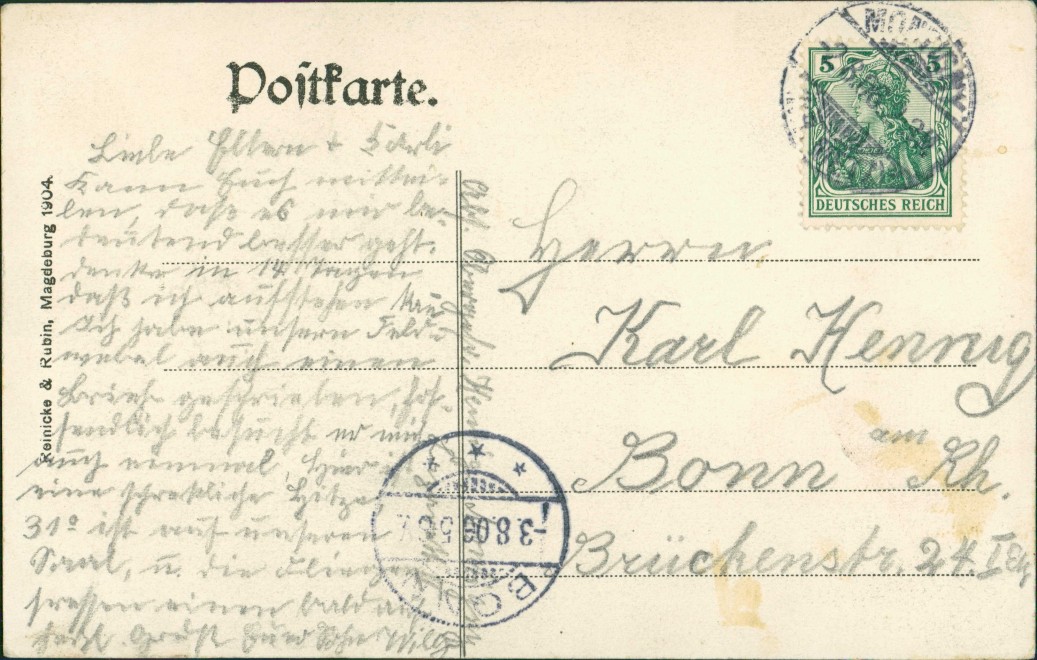 Postkarte.
Reinicke & Rubin, Magdeburg 1904.
5 5
DEUTSCHES REICH
Liebe Eltern + Karli
Kann Euch mittei-
len, daß es mir be-
deutend besser geht.
denke in 14 Tagen
daß ich aufstehen kan
Ich habe unsern Feld-
webel auch einen
Brief geschrieben, hof-
fendlich besucht er mich
auch einmal. Hier ist
eine schrekliche Hitze
31° ist auf unseren
Saal, u. die Fliegen
fressen einen bald auf
Gruß Euer Sohn Willy
Abs.
Herrn
Karl Hennig
Bonn am Rh.
Brückenstr. 24 I
-3.8.09.5-6